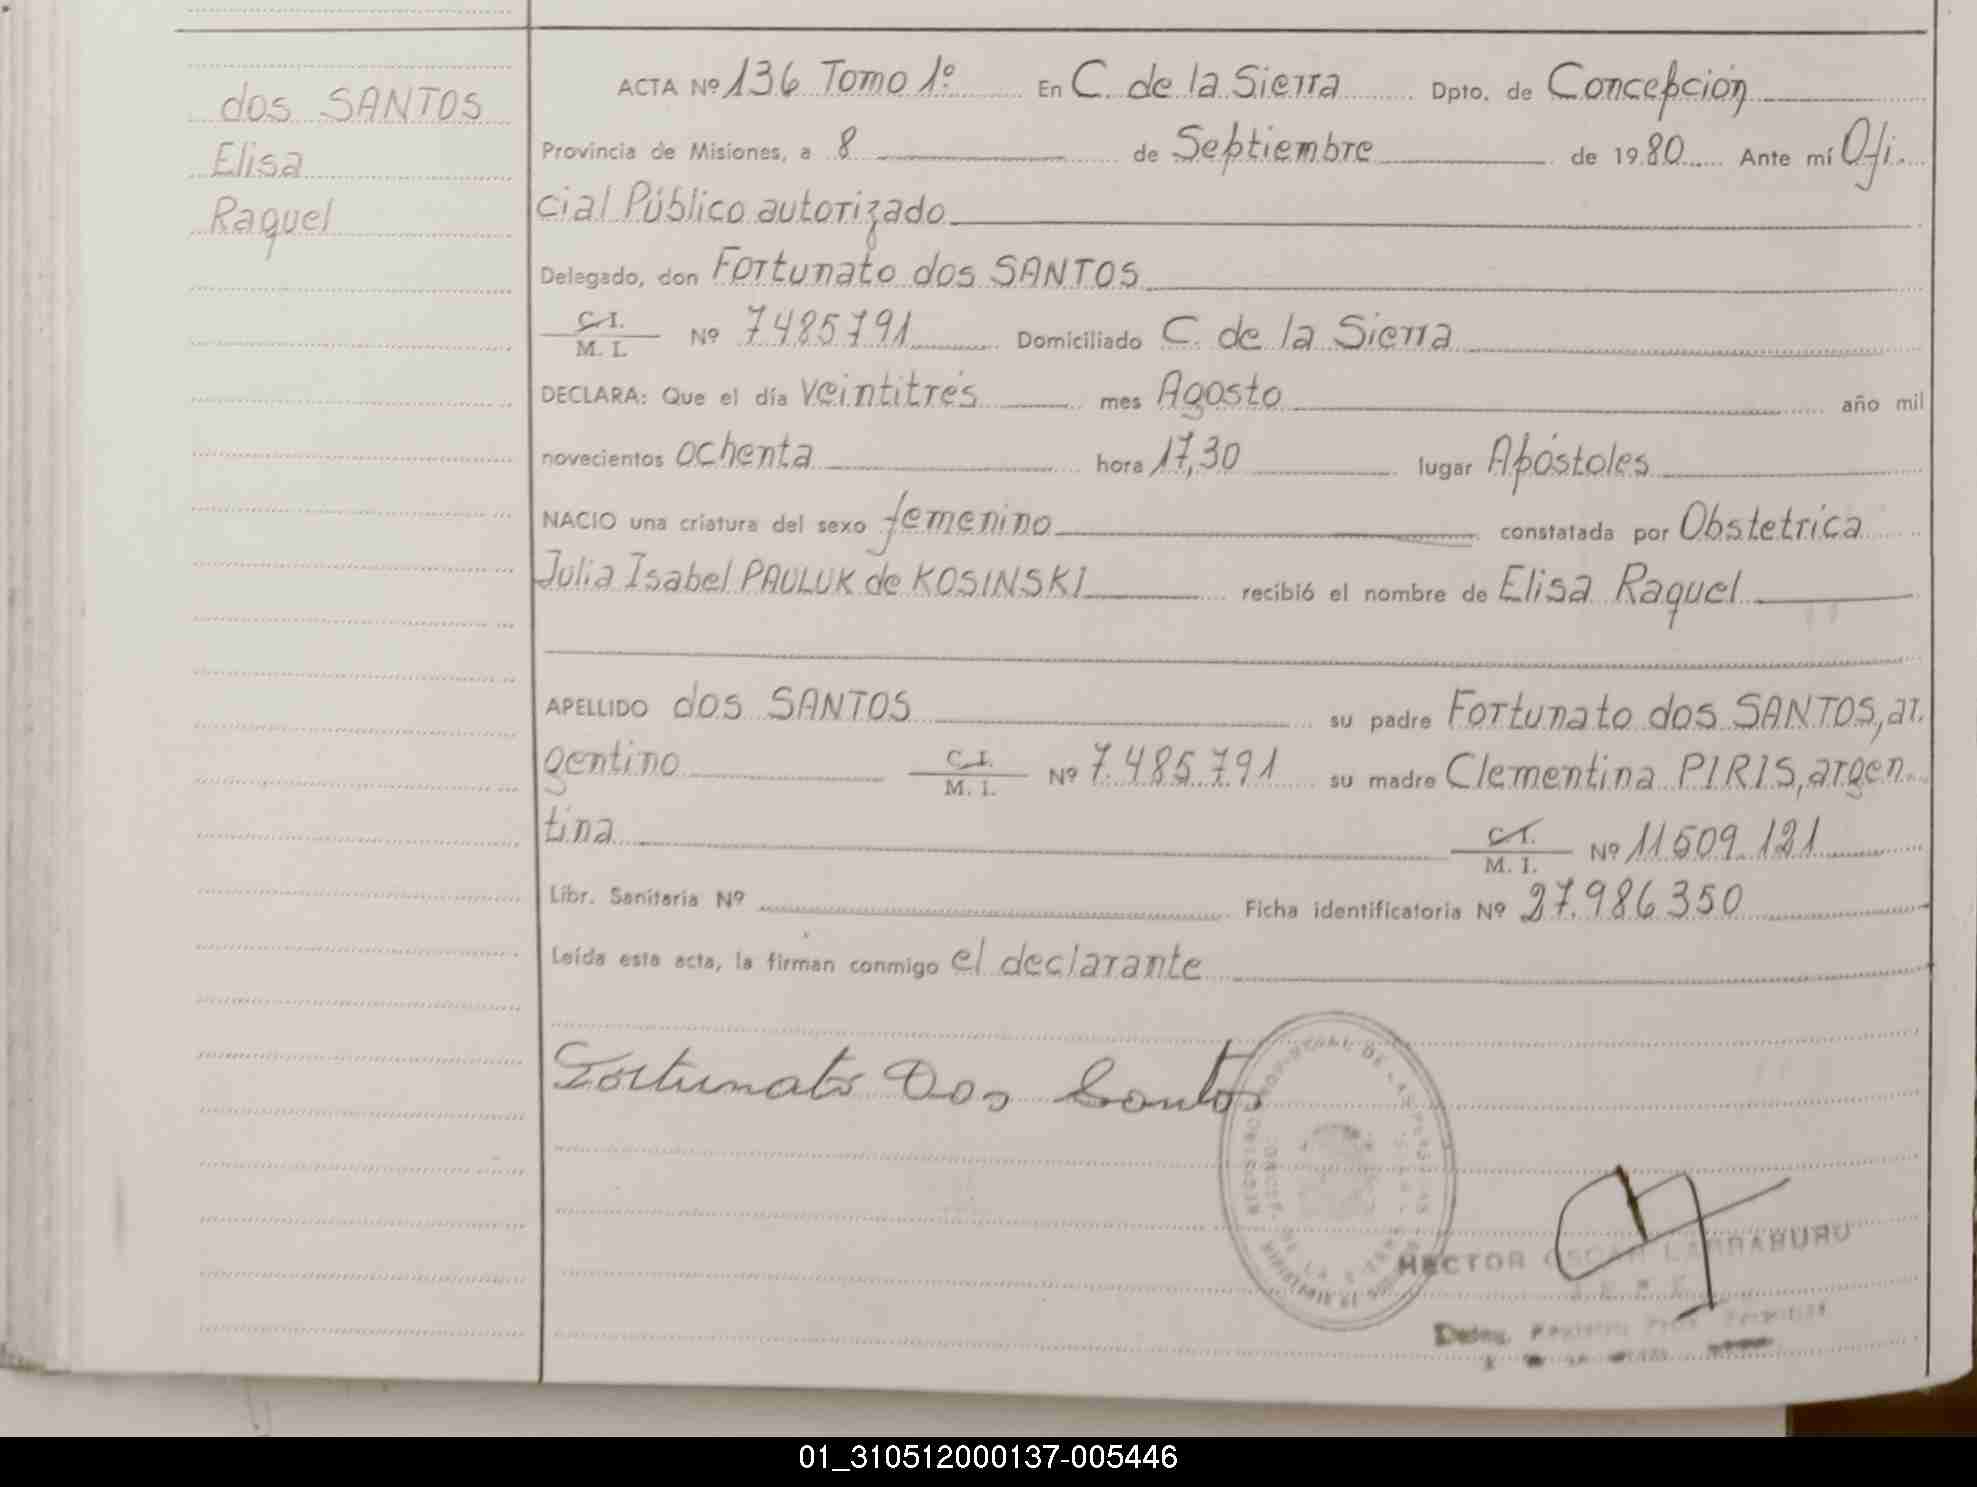 dos SANTOS
Elisa
Raquel
ACTA Nº 136 Tomo 1º En C. de la Sierra Dpto. de Concepción
Provincia de Misiones, a 8 de Septiembre de 1980 Ante mí Ofi-
cial Público autorizado
Delegado, don Fortunato dos SANTOS
C. I.
M. I. Nº 7485791 Domiciliado C. de la Sierra
DECLARA: Que el día veintitrés mes Agosto año mil
novecientos ochenta hora 17,30 lugar Apóstoles
NACIO una criatura del sexo femenino constatada por Obstetrica
Julia Isabel PAULUK de KOSINSKI recibió el nombre de Elisa Raquel
APELLIDO dos SANTOS su padre Fortunato dos SANTOS, ar-
gentino C. I.
M. I. Nº 7.485.791 su madre Clementina PIRIS, argen-
tina C. I.
M. I. Nº 11509.121
Libr. Sanitaria Nº Ficha identificatoria Nº 27.986350
Leída esta acta, la firman conmigo el declarante
Fortunato Dos Santos
HECTOR OSCAR LARRABURU
01_310512000137-005446